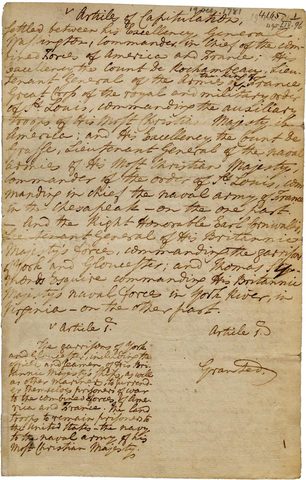 Article of Capitulation,
settled between his Excellency General
Washington, Commander in chief of the com
bined Forces of America and France; His
Excellency the Count de Rochambeau, Lieu-
tenant General of the France
Great Cross of the royal and military order
of St. Louis, commanding the auxiliary
troops of His Most Christian Majesty in
America; and His Excellency the Count de
Grasse, Lieutenant General of the naval
armies of His Most Christian Majesty,
Commander of the order of St. Louis, com-
manding in chief the naval army of France
in the Chesapeak - on the one part
- And the Right Honorable Earl Cornwallis,
Lieutenant General of His Britannic
Majesty's Forces, commanding the garrisons
of York and Gloucester; and Thomas Sy-
monds Esquire commanding His Britannic
Majesty's naval force in York River, in
Virginia - on the other part.
Article 1.
The garrisons of York
and Gloucester, including the
officers and seamen of His Bri-
tannic Majesty's ships, as well
as other mariners, to surrender
themselves prisoners of war
to the combined forces of Ame-
rica and France. The land
troops to remain prisoners to
the United States - the navy
to the naval army of his
Most Christian Majesty.
Article 1.
Granted.